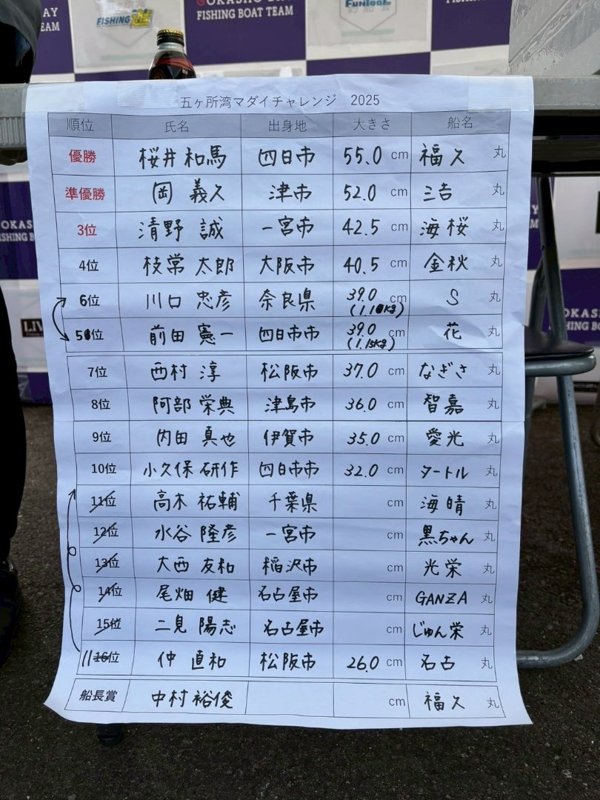 OKASHO BAY
FISHING BOAT TEAM
FISHING
FunTool
五ヶ所湾マダイチャレンジ 2025
順位 氏名 出身地 大きさ 船名
優勝 桜井和馬 四日市 55.0 cm 福久 丸
準優勝 岡 義久 津市 52.0 cm 三吉 丸
3位 清野 誠 一宮市 42.5 cm 海桜 丸
4位 枝常 太郎 大阪市 40.5 cm 金秋 丸
6位 川口 忠彦 奈良県 39.0 cm S 丸
前田 憲一 四日市市 39.0 cm 花 丸
(1.15kg)
7位 西村 淳 松阪市 37.0 cm なぎさ 丸
8位 阿部 栄典 津島市 36.0 cm 智嘉 丸
9位 内田 真也 伊賀市 35.0 cm 愛光 丸
10位 小久保 研作 四日市市 32.0 cm タートル 丸
11位 高木 祐輔 千葉県 cm 海晴 丸
12位 水谷 隆彦 一宮市 cm 黒ちゃん 丸
13位 大西 友和 稲沢市 cm 光栄 丸
14位 尾畑 健 名古屋市 cm GANZA 丸
15位 二見 陽志 名古屋市 cm じゅん栄 丸
11 16位 仲 直和 松阪市 26.0 cm 名古 丸
船長賞 中村 裕俊 cm 福久 丸